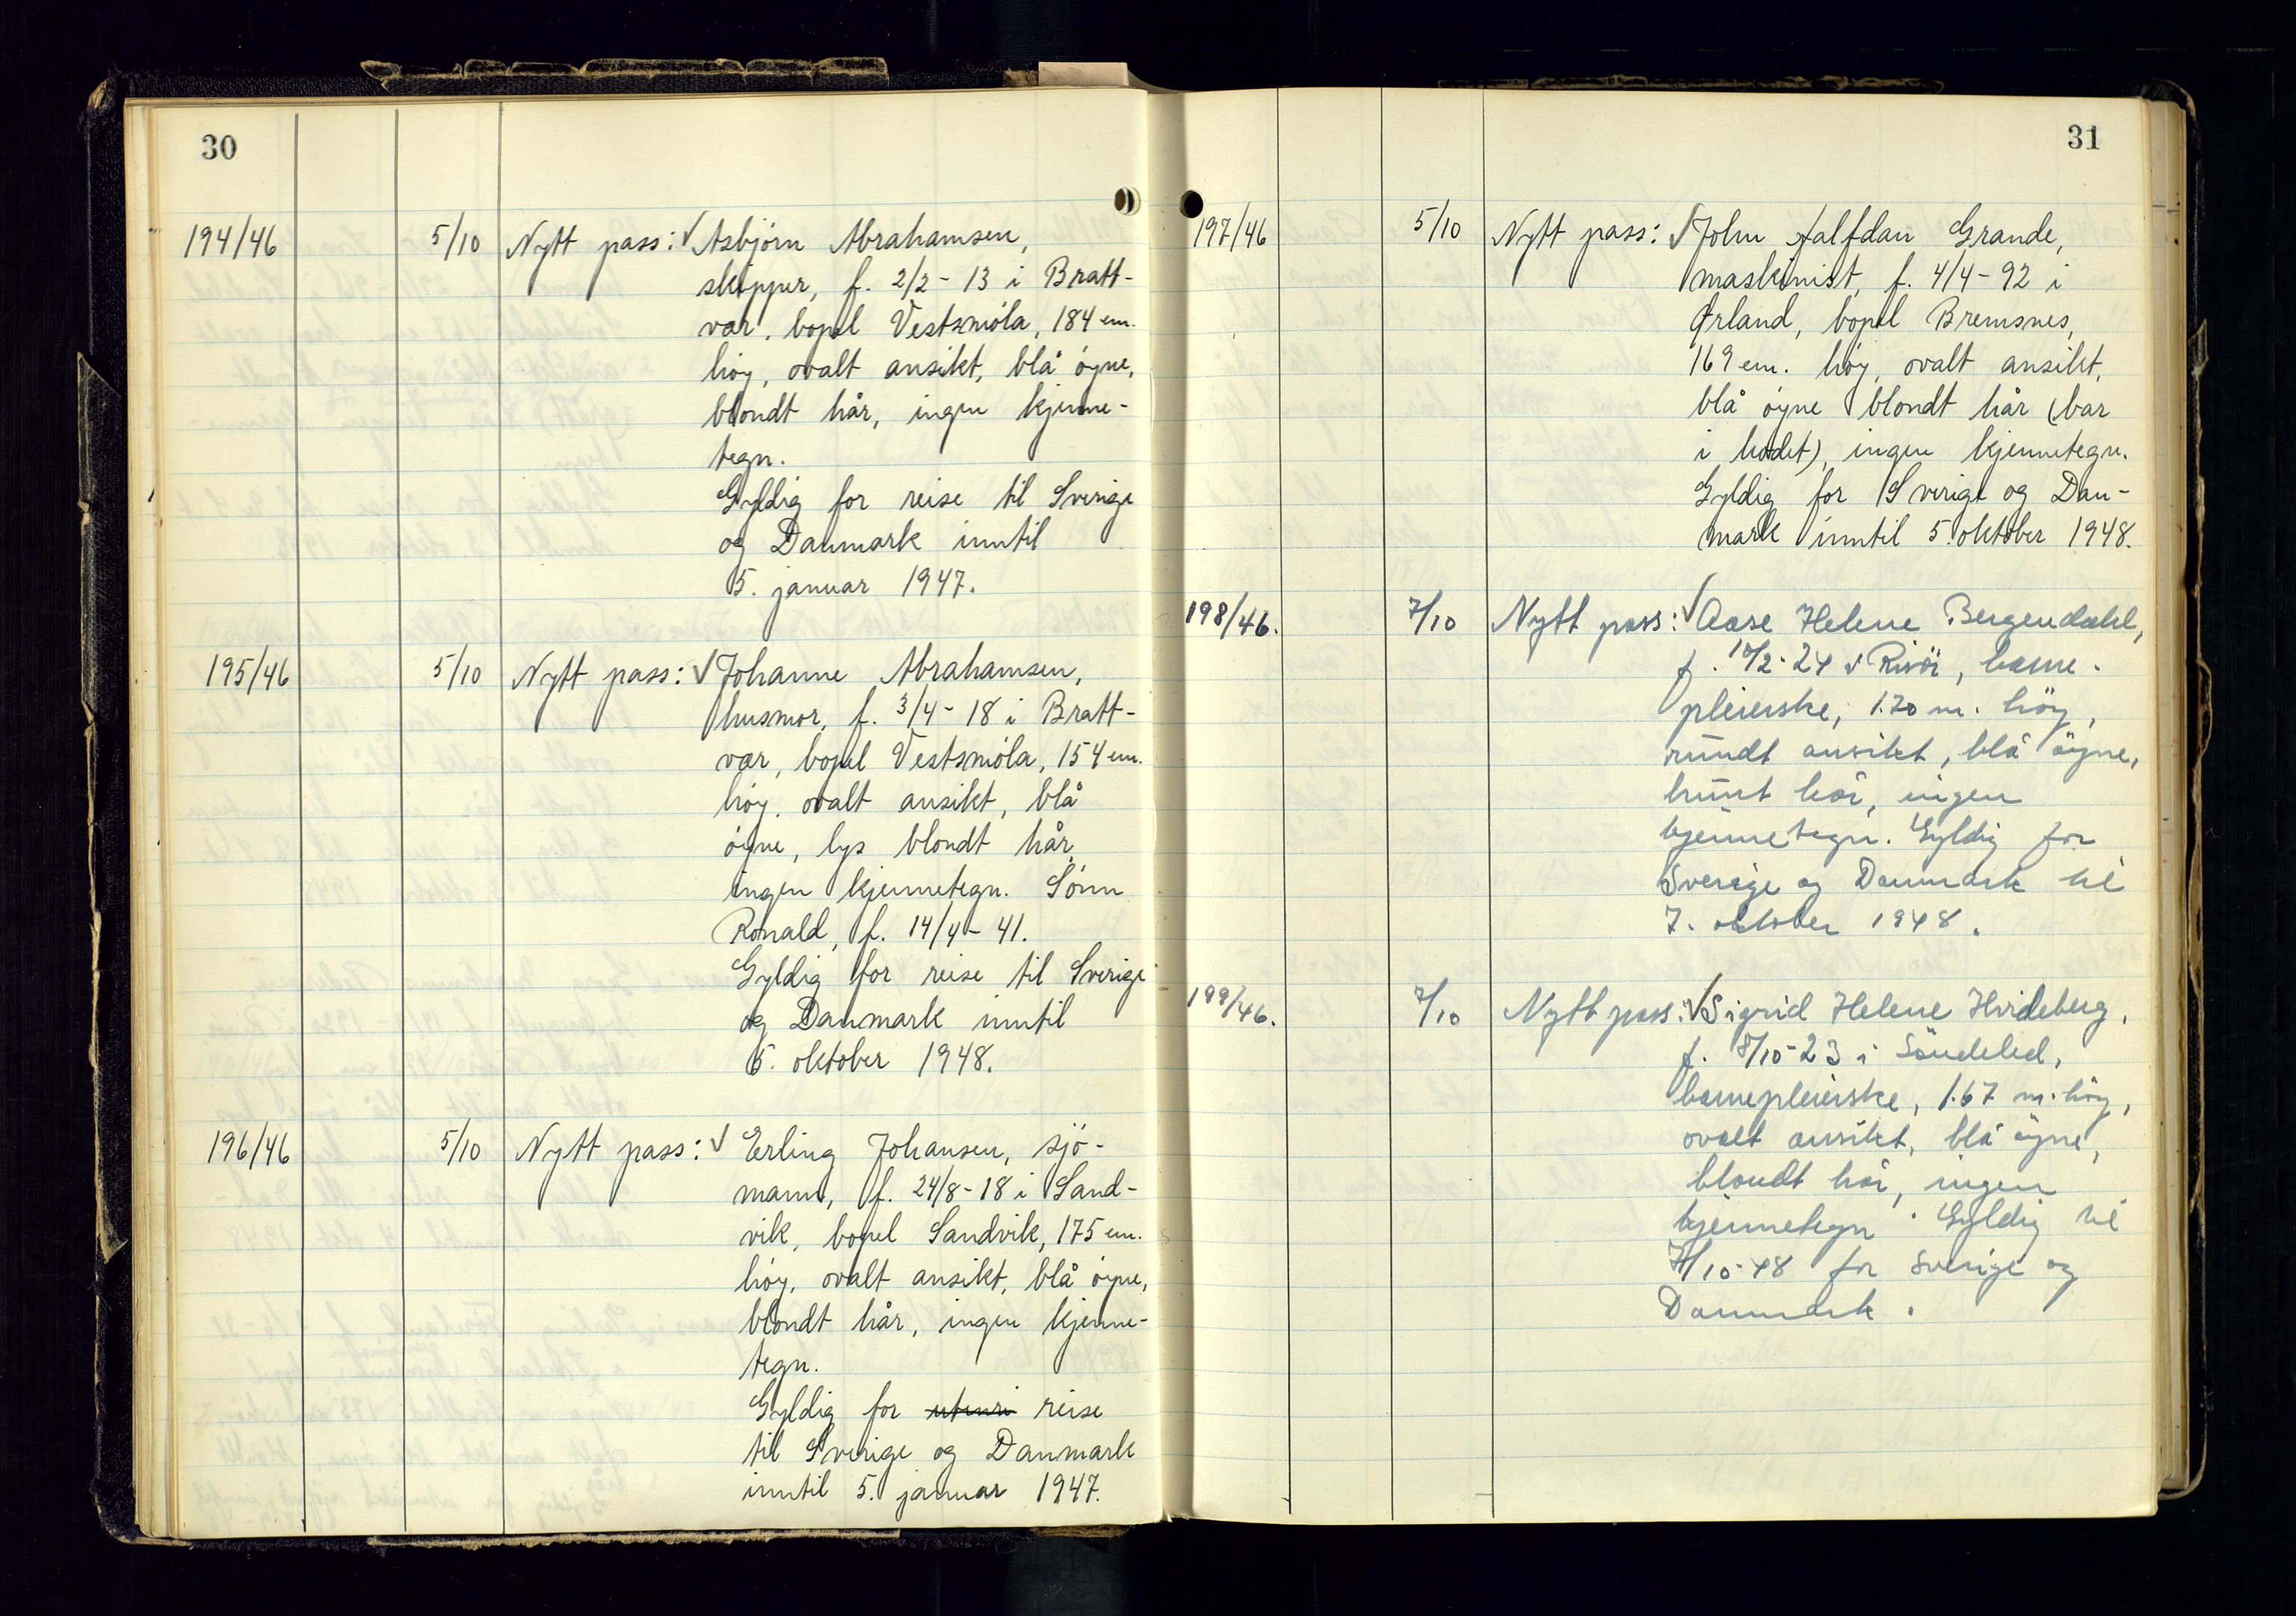 30
194/46 5/10 Nytt pass: √ Asbjørn Abrahamsen,
skipper, f. 2/2 - 13 i Bratt-
vær, bopel Vestsmøla, 184 cm.
høy, ovalt ansikt, blå øyne,
blondt hår, ingen kjenne-
tegn.
Gyldig for reise til Sverige
og Danmark inntil
5. januar 1947.
195/46 5/10 Nytt pass: √ Johanne Abrahamsen,
husmor, f. 3/4 - 18 i Bratt-
vær, bopel Vestsmøla, 154 cm.
høy, ovalt ansikt, blå
øyne, lys blondt hår,
ingen kjennetegn. Sønn
Ronald, f. 14/4 - 41.
Gyldig for reise til Sverige
og Danmark inntil
5. oktober 1948.
196/46 5/10 Nytt pass: √ Erling Johansen, sjø-
mann, f. 24/8 - 18 i Sand-
vik, bopel Sandvik, 175 cm.
høy, ovalt ansikt, blå øyne,
blondt hår, ingen kjenne-
tegn.
Gyldig for reise
til Sverige og Danmark
inntil 5. januar 1947.
31
197/46 5/10 Nytt pass: √ John Halfdan Grande,
maskinist, f. 4/4 - 92 i
Ørland, bopel Bremsnes,
169 cm. høy, ovalt ansikt,
blå øyne blondt hår (bar
i hodet), ingen kjennetegn.
Gyldig for Sverige og Dan-
mark inntil 5. oktober 1948.
198/46. 7/10 Nytt pass: √ Aase Helene Bergendahl,
f. 10/2 - 24 i Risör, barne-
pleierske, 1.70 m. höy,
rundt ansikt, blå öyne,
brunt hår, ingen
kjennetegn. Gyldig for
Sverige og Danmark til
7. oktober 1948.
199/46. 7/10 Nytt pass: √ Sigrid Helene Hvideberg,
f. 8/10 - 23 i Söndeled,
barnepleierske, 1.67 m. höy,
ovalt ansikt, blå öyne,
blondt hår, ingen
kjennetegn. Gyldig til
7/10-48 for Sverige og
Danmark.